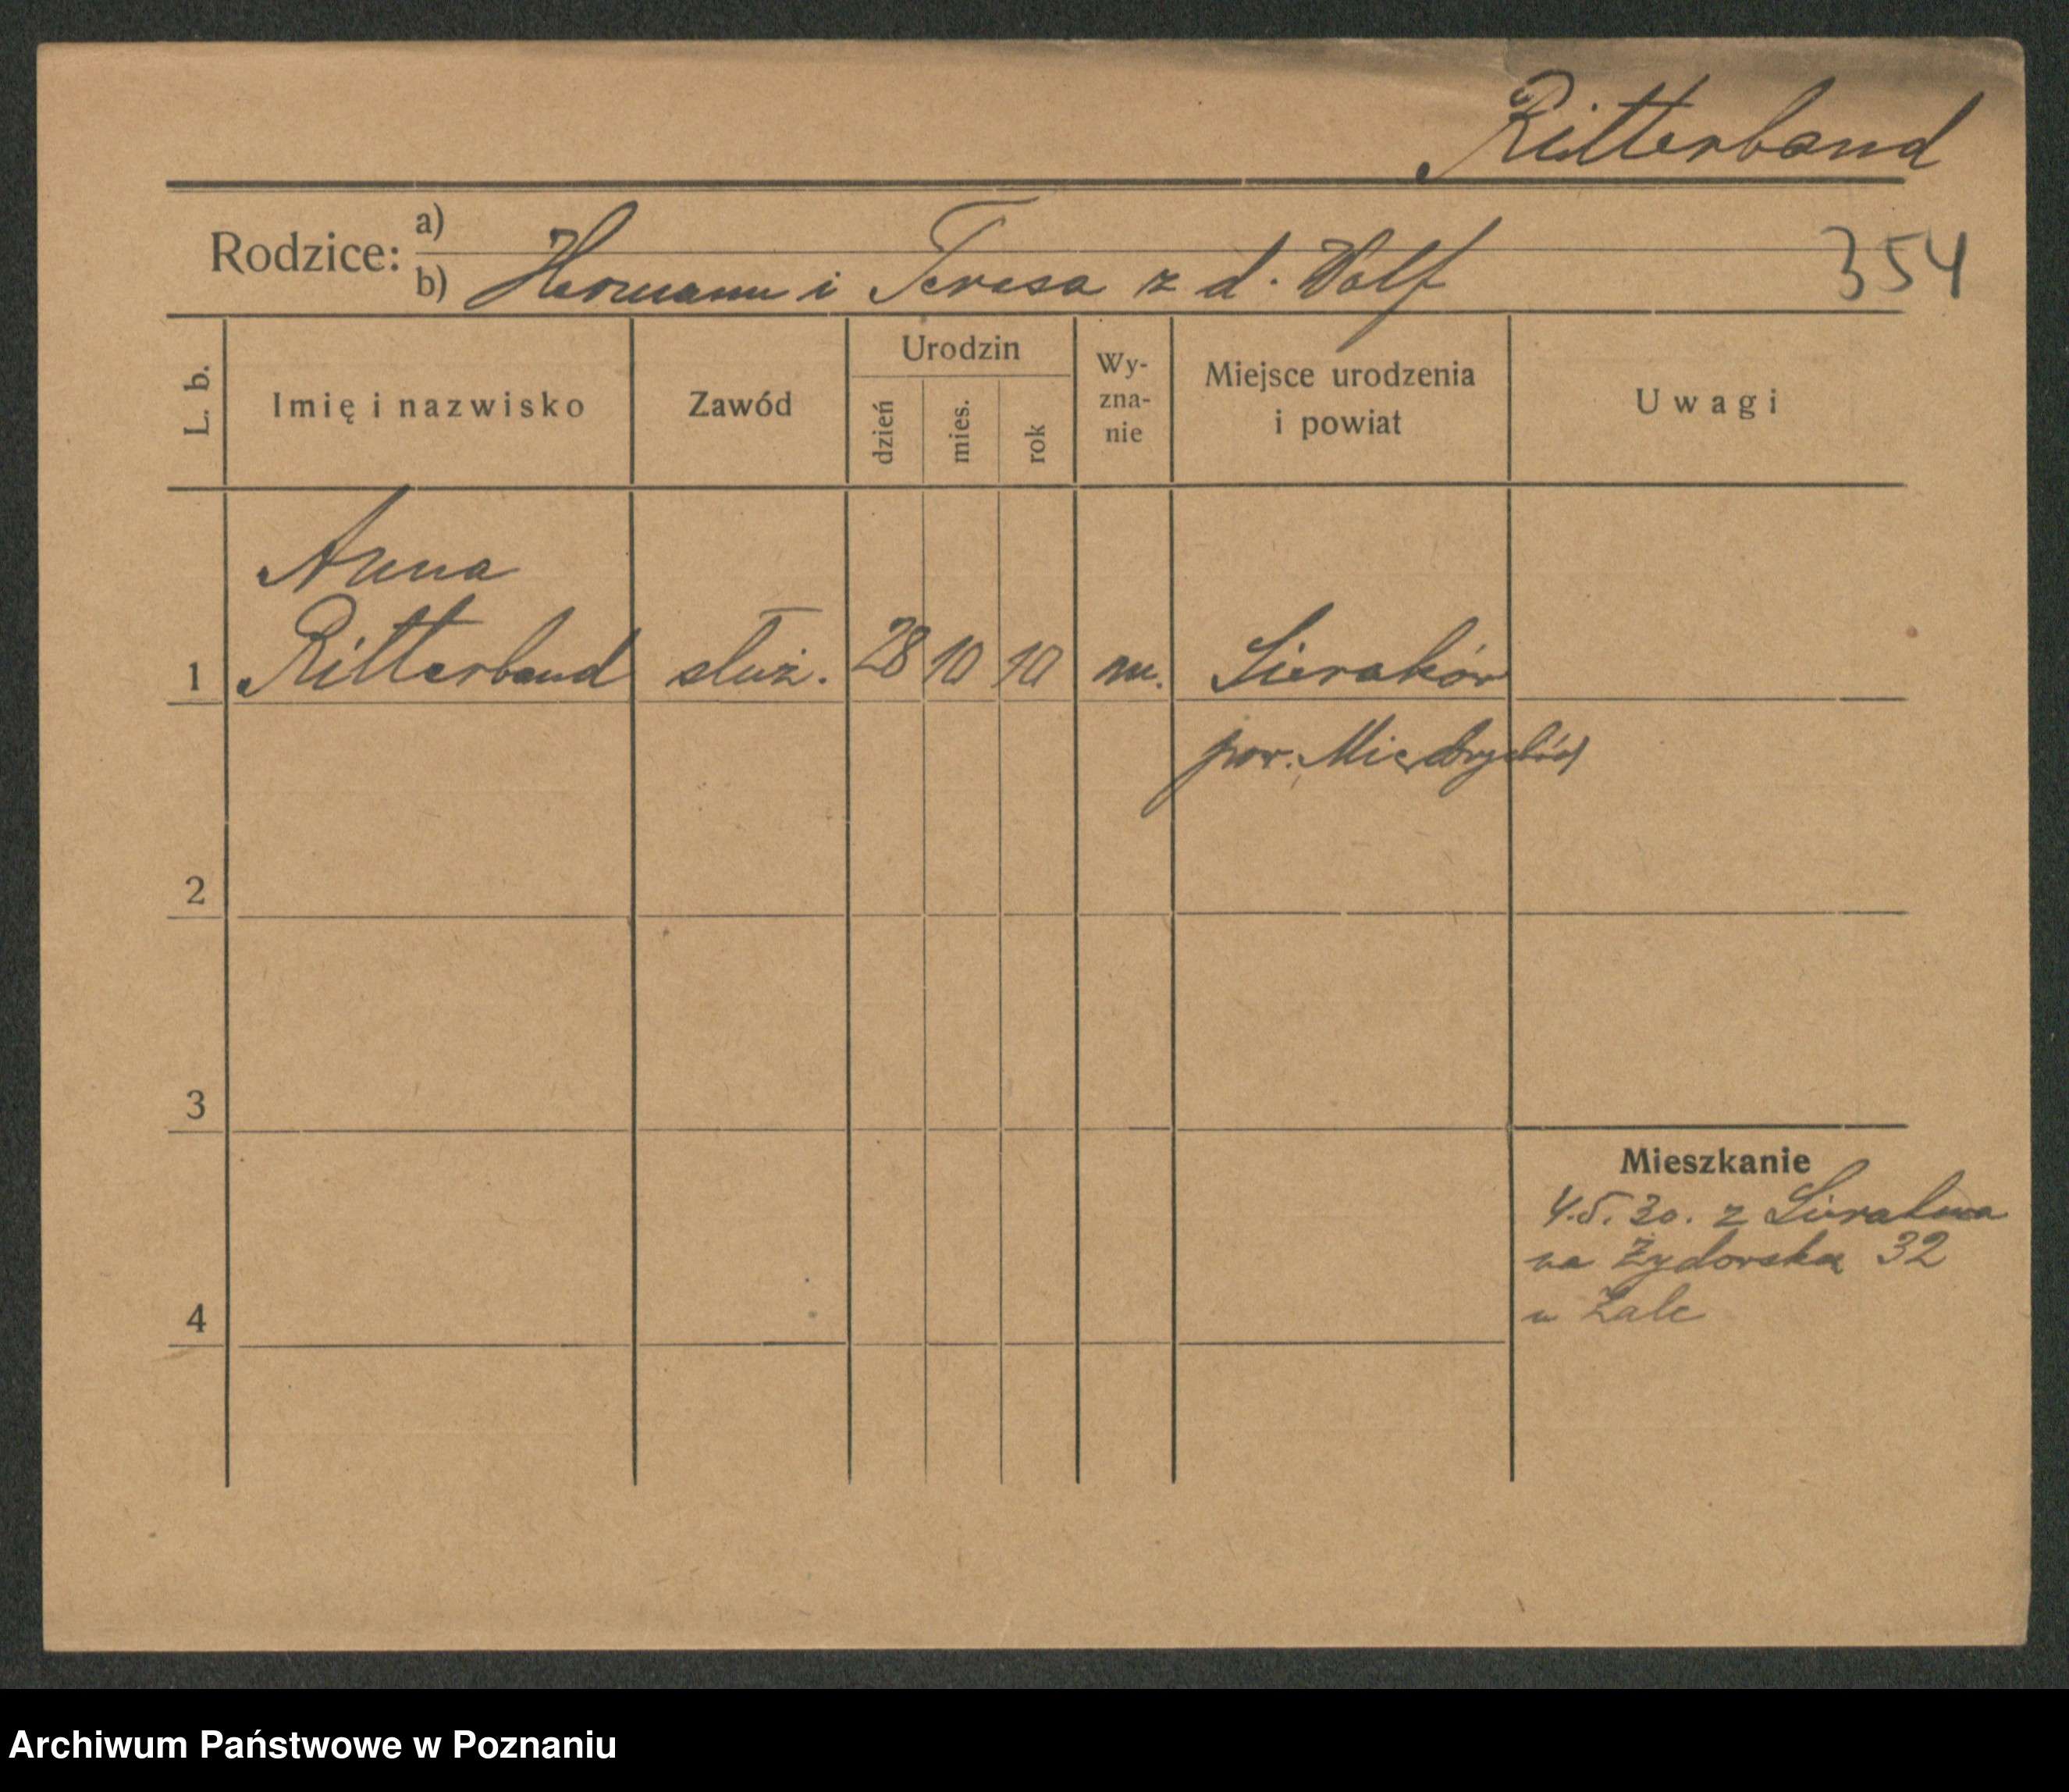 Ritterband
Rodzice: a)
b) Hermann i Teresa z d. Wolf
354
L. b.
Imię i nazwisko
Zawód
Urodzin
dzień
mies.
rok
Wy-
zna-
nie
Miejsce urodzenia
i powiat
Uwagi
Anna
1 Ritterband służ. 28 10 10 m. Sieraków
pow. Międzychód
2
3
Mieszkanie
4.5.30. z Sierakowa
na Żydowska 32
4
u Zale
Archiwum Państwowe w Poznaniu